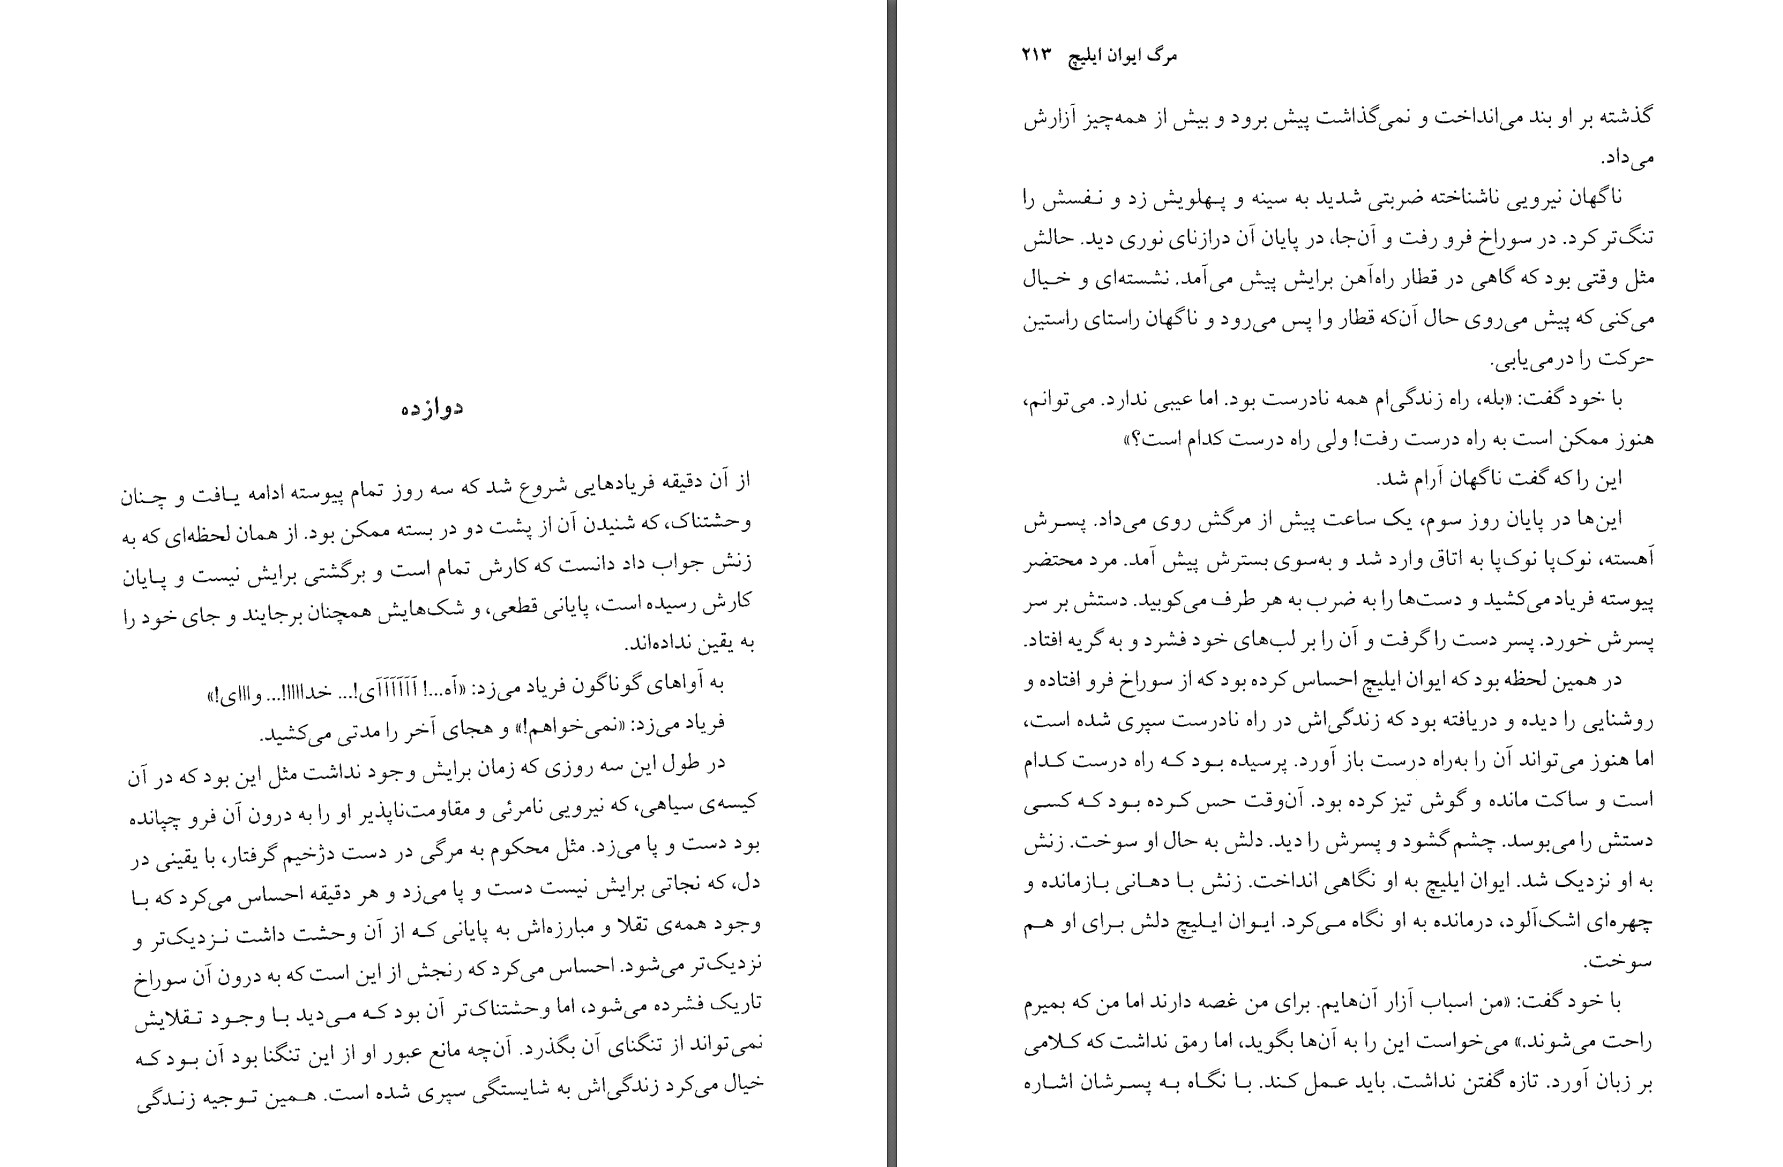 دوازده
از آن دقیقه فریادهایی شروع شد که سه روز تمام پیوسته ادامه یافت و چنان
وحشتناک، که شنیدن آن از پشت دو در بسته ممکن بود. از همان لحظه‌ای که به
زنش جواب داد دانست که کارش تمام است و برگشتی برایش نیست و پایان
کارش رسیده است، پایانی قطعی، و شک‌هایش همچنان برجایند و جای خود را
به یقین نداده‌اند.
به آواهای گوناگون فریاد می‌زد: «آه...! آآآآآآی!... خدااااا!... وااای!»
فریاد می‌زد: «نمی‌خواهم!» و هجای آخر را مدتی می‌کشید.
در طول این سه روزی که زمان برایش وجود نداشت مثل این بود که در آن
کیسه‌ی سیاهی، که نیرویی نامرئی و مقاومت‌ناپذیر او را به درون آن فرو چپانده
بود دست و پا می‌زد. مثل محکوم به مرگی در دست دژخیم گرفتار، با یقینی در
دل، که نجاتی برایش نیست دست و پا می‌زد و هر دقیقه احساس می‌کرد که با
وجود همه‌ی تقلا و مبارزه‌اش به پایانی که از آن وحشت داشت نزدیک‌تر و
نزدیک‌تر می‌شود. احساس می‌کرد که رنجش از این است که به درون آن سوراخ
تاریک فشرده می‌شود، اما وحشتناک‌تر آن بود که می‌دید با وجود تقلایش
نمی‌تواند از تنگنای آن بگذرد. آن‌چه مانع عبور او از این تنگنا بود آن بود که
خیال می‌کرد زندگی‌اش به شایستگی سپری شده است. همین توجیه زندگی
مرگ ایوان ایلیچ ۲۱۳
گذشته بر او بند می‌انداخت و نمی‌گذاشت پیش برود و بیش از همه‌چیز آزارش
می‌داد.
ناگهان نیرویی ناشناخته ضربتی شدید به سینه و پهلویش زد و نفسش را
تنگ‌تر کرد. در سوراخ فرو رفت و آن‌جا، در پایان آن درازنای نوری دید. حالش
مثل وقتی بود که گاهی در قطار راه‌آهن برایش پیش می‌آمد. نشسته‌ای و خیال
می‌کنی که پیش می‌روی حال آن‌که قطار وا پس می‌رود و ناگهان راستای راستین
حرکت را درمی‌یابی.
با خود گفت: «بله، راه زندگی‌ام همه نادرست بود. اما عیبی ندارد. می‌توانم،
هنوز ممکن است به راه درست رفت! ولی راه درست کدام است؟»
این را که گفت ناگهان آرام شد.
این‌ها در پایان روز سوم، یک ساعت پیش از مرگش روی می‌داد. پسرش
آهسته، نوک‌پا نوک‌پا به اتاق وارد شد و به‌سوی بسترش پیش آمد. مرد محتضر
پیوسته فریاد می‌کشید و دست‌ها را به ضرب به هر طرف می‌کوبید. دستش بر سر
پسرش خورد. پسر دست را گرفت و آن را بر لب‌های خود فشرد و به گریه افتاد.
در همین لحظه بود که ایوان ایلیچ احساس کرده بود که از سوراخ فرو افتاده و
روشنایی را دیده و دریافته بود که زندگی‌اش در راه نادرست سپری شده است،
اما هنوز می‌تواند آن را به‌راه درست باز آورد. پرسیده بود که راه درست کدام
است و ساکت مانده و گوش تیز کرده بود. آن‌وقت حس کرده بود که کسی
دستش را می‌بوسد. چشم گشود و پسرش را دید. دلش به حال او سوخت. زنش
به او نزدیک شد. ایوان ایلیچ به او نگاهی انداخت. زنش با دهانی بازمانده و
چهره‌ای اشک‌آلود، درمانده به او نگاه می‌کرد. ایوان ایلیچ دلش برای او هم
سوخت.
با خود گفت: «من اسباب آزار آن‌هایم. برای من غصه دارند اما من که بمیرم
راحت می‌شوند.» می‌خواست این را به آن‌ها بگوید، اما رمق نداشت که کلامی
بر زبان آورد. تازه گفتن نداشت. باید عمل کند. با نگاه به پسرشان اشاره